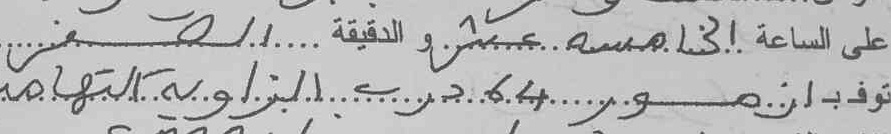 على الساعة الخامسة عشر و الدقيقة الصفر
توفي بـ ازمور 64 درب الزاوية التهامية